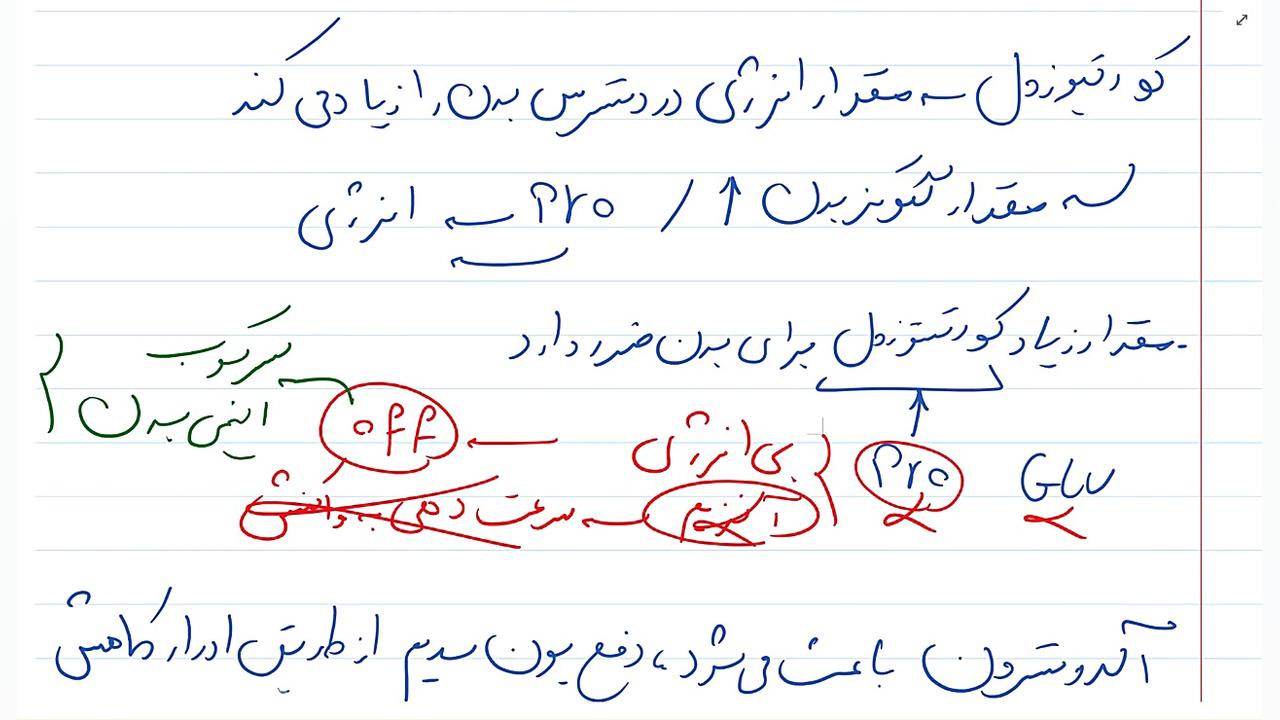 کورتیزول ← مقدار انرژی در دسترس بدن را زیاد می کند
← مقدار گلوکز بدن ↑ / Pro ← انرژی
مقدار زیاد کورتیزول برای بدن ضرر دارد
سرکوب
ایمنی بدن
off ← بی انرژی
Pro Glu
آنزیم ← سرعت دهی به واکنش
آلدوسترون باعث می شود، دفع یون سدیم از طریق ادرار کاهش